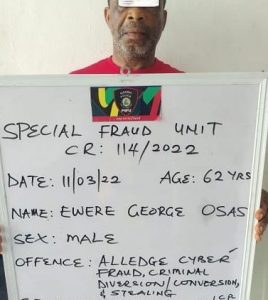 SPECIAL FRAUD UNIT
CR: 114/2022
DATE: 11/03/22 AGE: 62 YRS
NAME: EWERE GEORGE OSAS
SEX: MALE
OFFENCE: ALLEDGE CYBER
FRAUD, CRIMINAL
DIVERSION/CONVERSION,
& STEALING